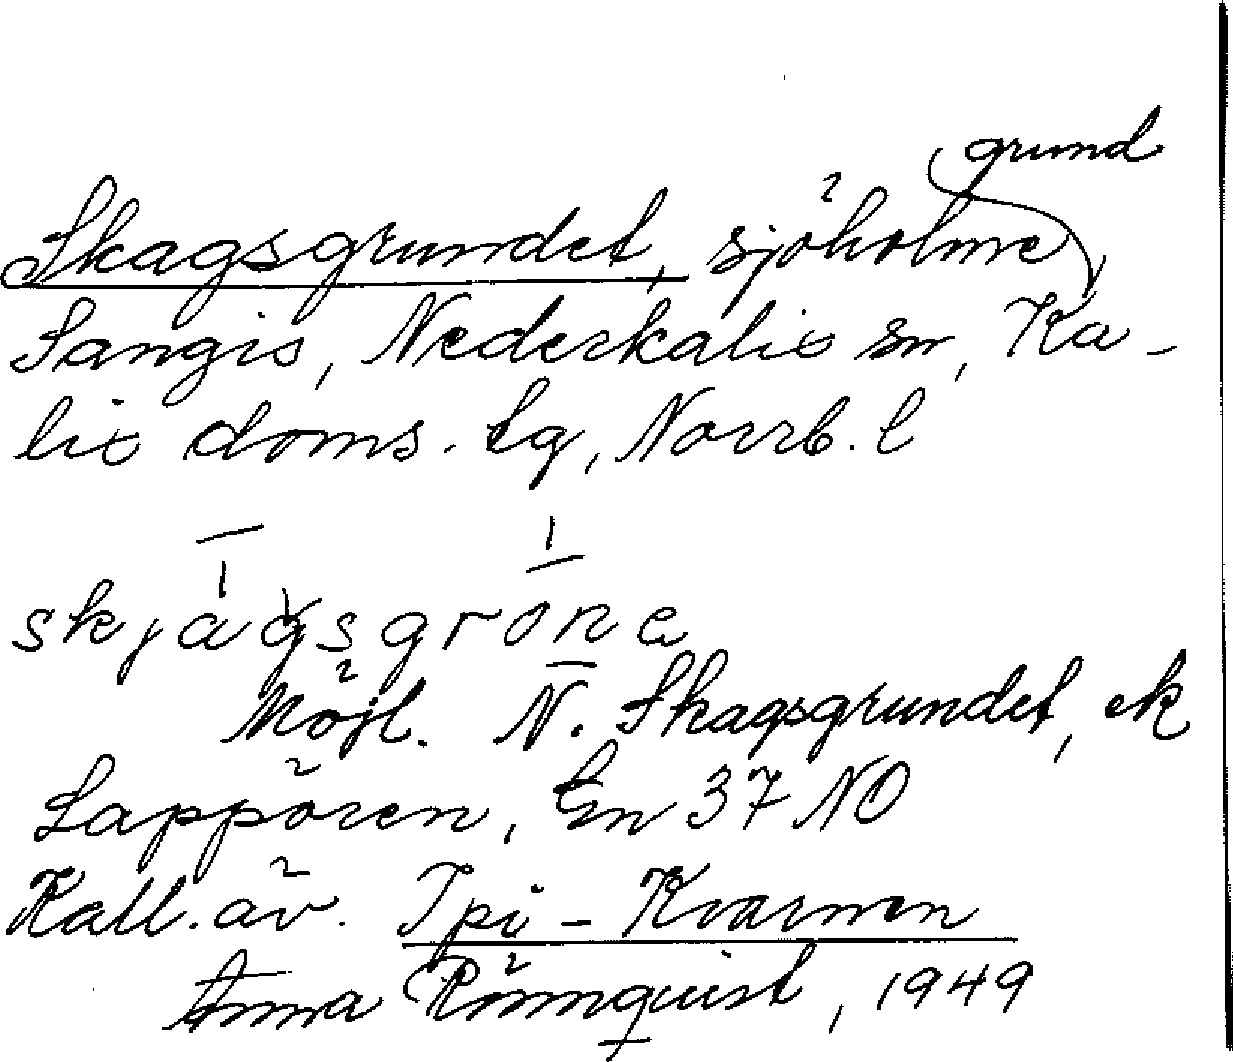 grund
Skagsgrundet, sjöholme,
Sangis, Nederkalix sn, Ka-
lix doms. lg, Norrb. l
skjagsgrone
Möjl. N. Skagsgrundet, ek
Lappören, Gn 37 NO
Kall. äv. Ipi-Kvarnen
Anna Rönnquist, 1949